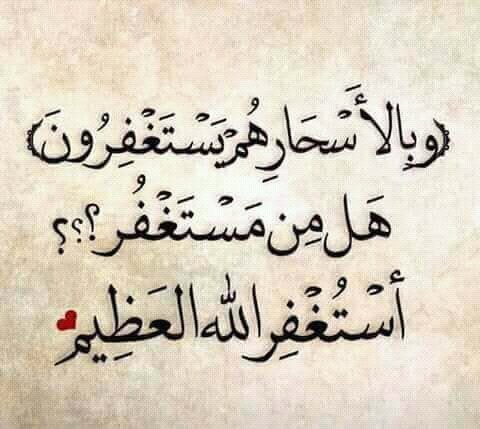 ﴿وبِالأَسْحَارِ هُمْ يَسْتَغْفِرُونَ﴾
هَل مِن مَسْتَغْفُر ؟؟؟
أسْتُغْفِر الله العَظِيم